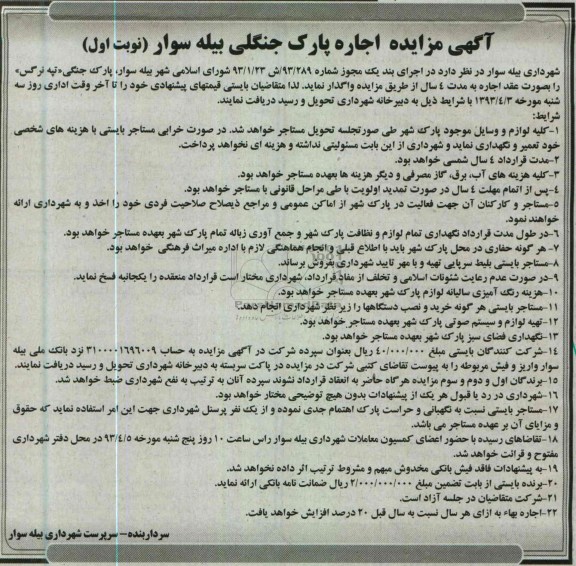 آگهی مزایده اجاره پارک جنگلی بیله سوار (نوبت اول)
شهرداری بیله سوار در نظر دارد در اجرای بند یک مجوز شماره ۹۳/۲۸۹/ش ۹۳/۱/۲۳ شورای اسلامی شهر بیله سوار، پارک جنگی«تپه نرگس»
را بصورت عقد اجاره به مدت ۴ سال از طریق مزایده واگذار نماید. لذا متقاضیان بایستی قیمتهای پیشنهادی خود را تا آخر وقت اداری روز سه
شنبه مورخه ۱۳۹۳/۴/۳ با شرایط ذیل به دبیرخانه شهرداری تحویل و رسید دریافت نمایند.
شرایط:
۱-کلیه لوازم و وسایل موجود پارک شهر طی صورتجلسه تحویل مستاجر خواهد شد. در صورت خرابی مستاجر بایستی با هزینه های شخصی
خود تعمیر و نگهداری نماید و شهرداری از این بابت مسئولیتی نداشته و هزینه ای نخواهد پرداخت.
۲-مدت قرارداد ۴ سال شمسی خواهد بود.
۳-کلیه هزینه های آب، برق، گاز مصرفی و دیگر هزینه ها بعهده مستاجر خواهد بود.
۴-پس از اتمام مهلت ۴ سال در صورت تمدید اولویت با طی مراحل قانونی با مستاجر خواهد بود.
۵-مستاجر و کارکنان آن جهت فعالیت در پارک شهر از اماکن عمومی و مراجع ذیصلاح صلاحیت فردی خود را اخذ و به شهرداری ارائه
خواهند نمود.
۶-در طول مدت قرارداد نگهداری تمام لوازم و نظافت پارک شهر و جمع آوری زباله تمام پارک شهر بعهده مستاجر خواهد بود.
۷- هر گونه حفاری در محل پارک شهر باید با اطلاع قبلی و انجام هماهنگی لازم با اداره میراث فرهنگی خواهد بود.
۸-مستاجر بایستی بلیط سرپایی تهیه و با مهر تایید شهرداری بفروش برساند.
۹-در صورت عدم رعایت شئونات اسلامی و تخلف از مفاد قرارداد، شهرداری مختار است قرارداد منعقده را یکجانبه فسخ نماید.
۱۰-هزینه رنگ آمیزی سالیانه لوازم پارک شهر بعهده مستاجر خواهد بود.
۱۱-مستاجر بایستی هر گونه خرید و نصب دستگاهها را زیر نظر شهرداری انجام دهد.
۱۲-تهیه لوازم و سیستم صوتی پارک شهر بعهده مستاجر خواهد بود.
۱۳-نگهداری فضای سبز پارک شهر بعهده مستاجر خواهد بود.
۱۴-شرکت کنندگان بایستی مبلغ ۴۰/۰۰۰/۰۰۰ ریال بعنوان سپرده شرکت در آگهی مزایده به حساب ۳۱۰۰۰۰۱۶۹۶۰۰۹ نزد بانک ملی بیله
سوار واریز و فیش مربوطه را به پیوست تقاضای کتبی شرکت در مزایده در پاکت سربسته به دبیرخانه شهرداری تحویل و رسید دریافت نمایند.
۱۵-برندگان اول و دوم و سوم مزایده هرگاه حاضر به انعقاد قرارداد نشوند سپرده آنان به ترتیب به نفع شهرداری ضبط خواهد شد.
۱۶-شهرداری در رد یا قبول هر یک از پیشنهادات بدون هیچ توضیحی مختار خواهد بود.
۱۷-مستاجر بایستی نسبت به نگهبانی و حراست پارک اهتمام جدی نموده و از یک نفر پرسنل شهرداری جهت این امر استفاده نماید که حقوق
و مزایای آن بر عهده مستاجر می باشد.
۱۸-تقاضاهای رسیده با حضور اعضای کمسیون معاملات شهرداری بیله سوار راس ساعت ۱۰ روز پنج شنبه مورخه ۹۳/۴/۵ در محل دفتر شهرداری
مفتوح و قرائت خواهد شد.
۱۹-به پیشنهادات فاقد فیش بانکی مخدوش مبهم و مشروط ترتیب اثر داده نخواهد شد.
۲۰-برنده بایستی از بابت تضمین مبلغ ۲/۰۰۰/۰۰۰/۰۰۰ ریال ضمانت نامه بانکی ارائه نماید.
۲۱-شرکت متقاضیان در جلسه آزاد است.
۲۲-اجاره بهاء به ازای هر سال نسبت به سال قبل ۲۰ درصد افزایش خواهد یافت.
سرداربنده- سرپرست شهرداری بیله سوار